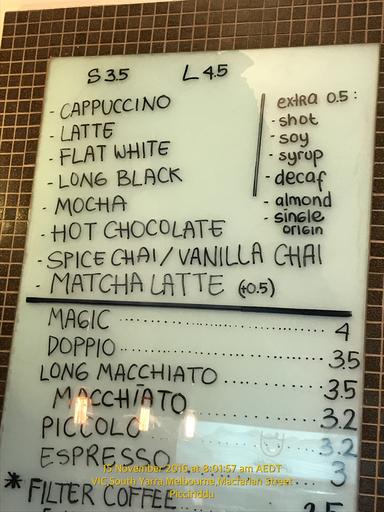 S 3.5 L 4.5
- CAPPUCCINO
- LATTE
- FLAT WHITE
- LONG BLACK
- MOCHA
- HOT CHOCOLATE
- SPICE CHAI / VANILLA CHAI
- MATCHA LATTE (+0.5)
extra 0.5:
- shot
- soy
- syrup
- decaf
- almond
- single
origin
MAGIC 4
DOPPIO 3.5
LONG MACCHIATO 3.5
MACCHIATO 3.2
PICCOLO 3.2
ESPRESSO 3
* FILTER COFFEE
15 November 2016 at 8:01:57 am AEDT
VIC,South Yarra,Melbourne,Macfarlan Street